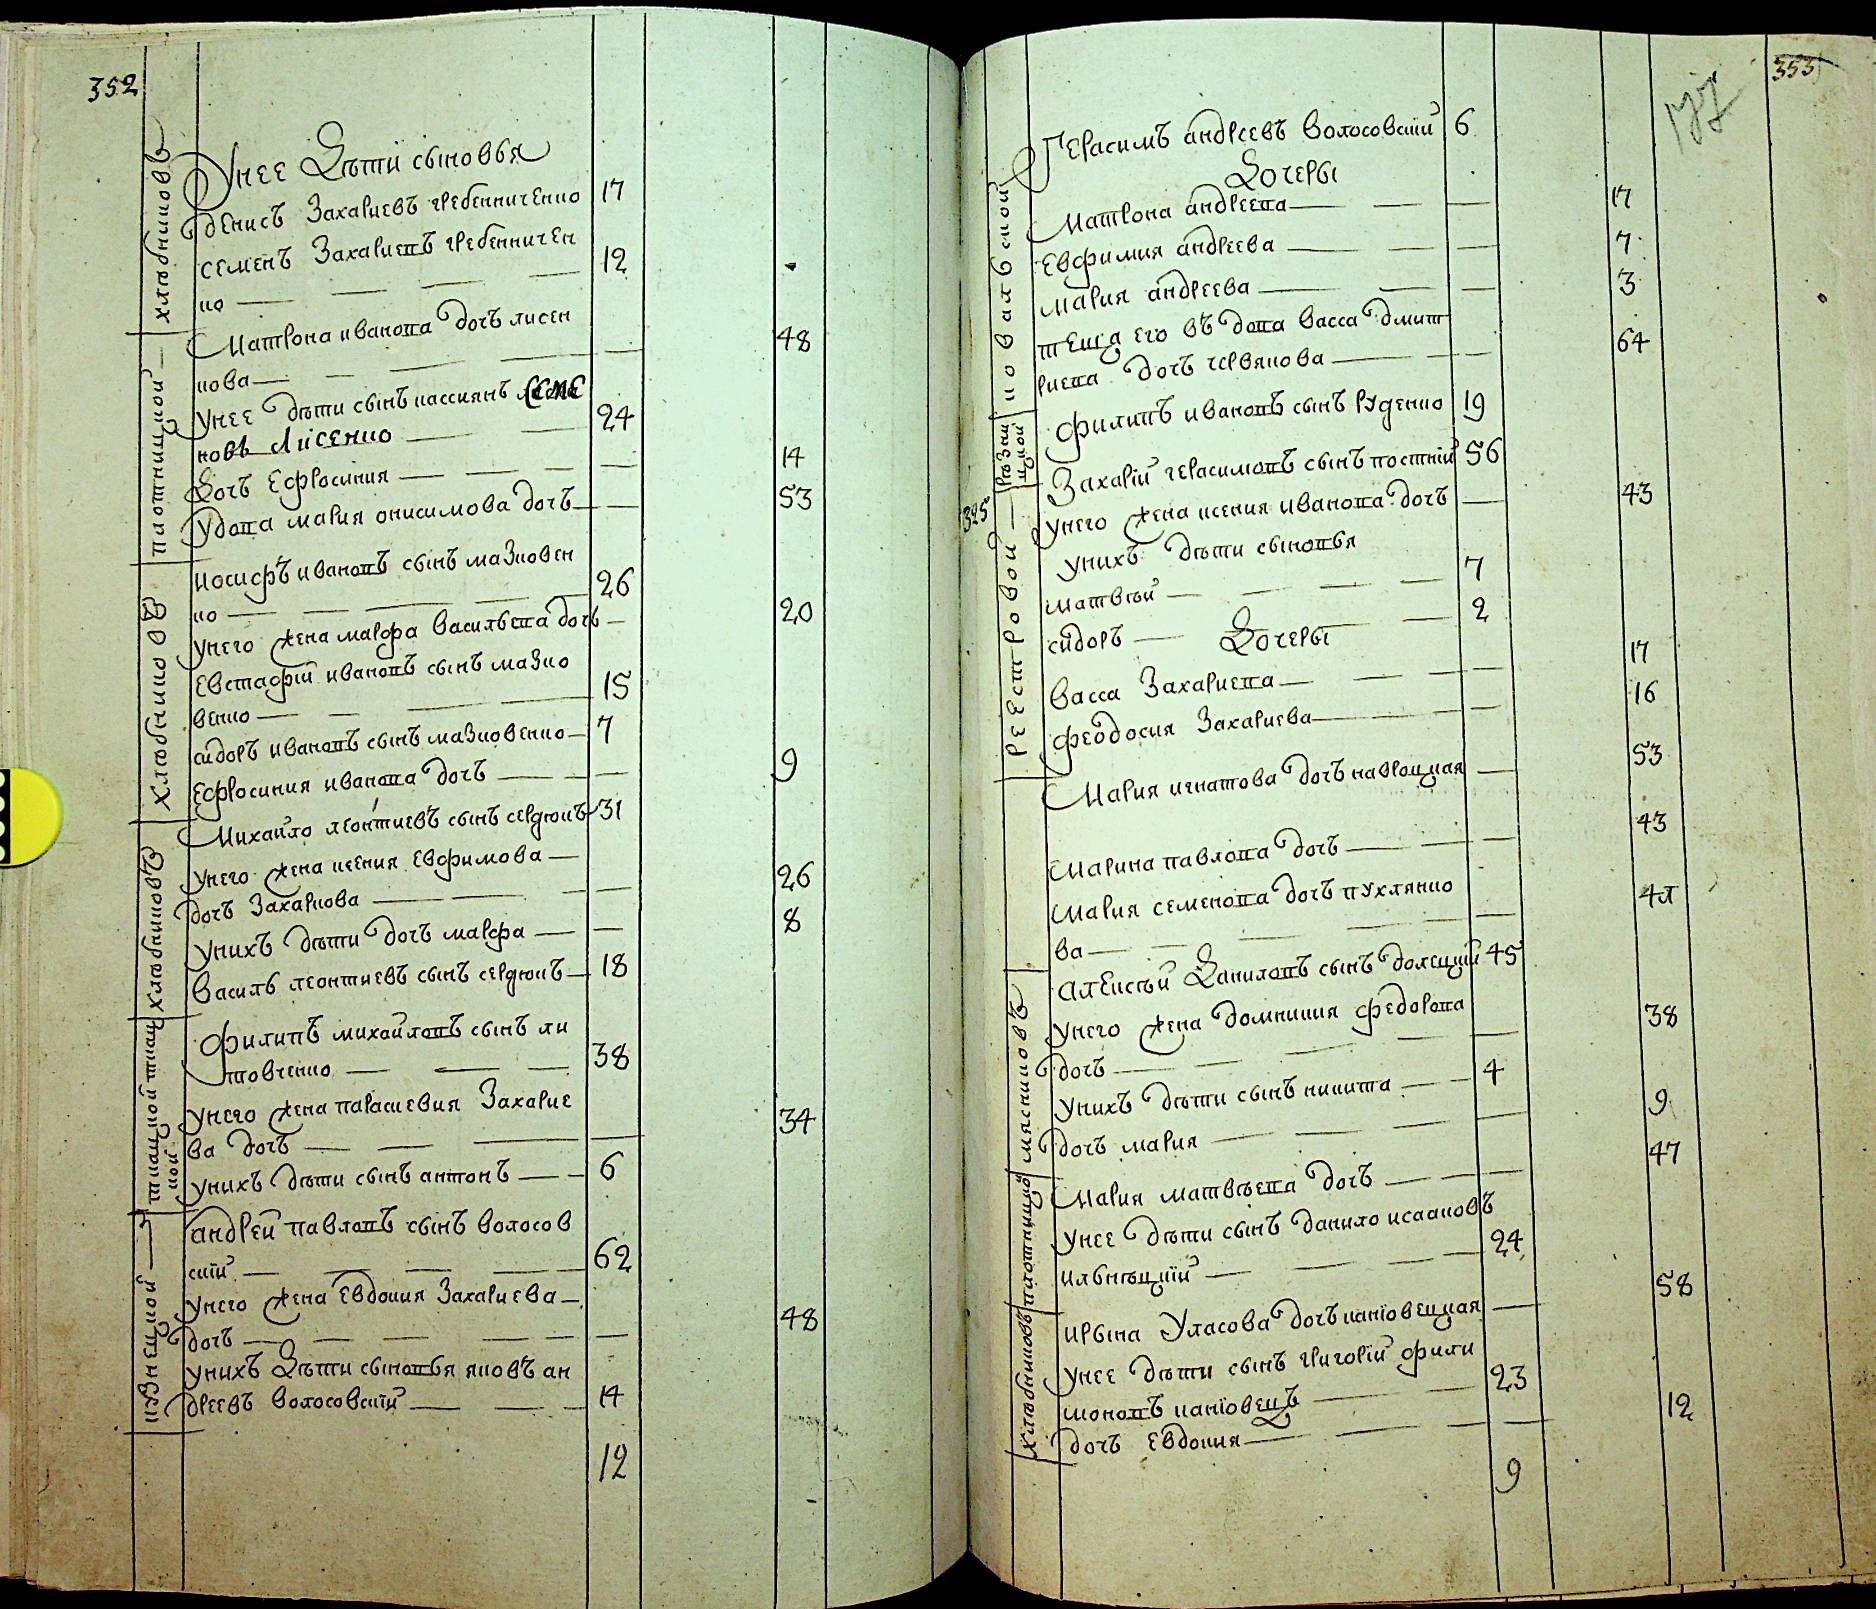 352
хлѣбников
Унее Дѣти сыновья
денисъ Захариевъ гребенниченко 17
семенъ Захариевъ гребенничен
ко 12
плотницкой
Матрона иванова дочъ лисен
кова 48
унее дѣти сынъ кассиянъ семе
новъ Лисенко 24
Дочъ Ефросиния 14
удова мария онисимова дочъ 53
хлѣбников
иосифъ ивановъ сынъ мазновен
ко 26
унего жена марфа васильева дочъ 20
евстафій ивановъ сынъ мазно
венко 15
сидоръ ивановъ сынъ мазновенко 7
ефросиния иванова дочъ 9
хлѣбниковъ
Михаило леонтиевъ сынъ сердюкъ 31
унего жена ксения евфимова
дочъ Захаркова 26
унихъ дѣти дочъ марфа 8
василь леонтиевъ сынъ сердюкъ 18
ткацкой
филипъ михайловъ сынъ ли
товченко 38
унего жена параскевия Захарие
ва дочъ 34
унихъ дѣти сынъ антонъ 6
кузнецкой
андрей павловъ сынъ волосов
скій 62
унего жена евдокия Захариева
дочъ 48
унихъ Дѣти сыновья яковъ ан
дреевъ волосовскій 14
12
353
177
ковальской
Герасимъ андреевъ волосовскій 6
Дочеры
Матрона андреева 17
евфимия андреева 7
мария андреева 3
тещa его въдова васса дмит
риева дочъ червякова 64
рѣзницкой
филипъ ивановъ сынъ руденко 19
325
реестровой
Захарій герасимовъ сынъ постний 56
унего жена ксения иванова дочъ 43
унихъ дѣти сыновья
матвѣй 7
сидоръ 2
Дочеры
васса Захариева 17
феодосия Захариева 16
Мария игнатова дочъ навроцкая 53
Марина павлова дочъ 43
Мария семенова дочъ пухлянко
ва
мясниковъ
алексѣй Даниловъ сынъ долецкий 45
унего жена домникия федорова
дочъ 38
унихъ дѣти сынъ никита 4
дочъ мария 9
плотницкой
Мария матвѣева дочъ 47
унее дѣти сынъ данило исааковъ
илбницкій 24
хлѣбниковъ
ирына уласова дочъ каніовецкая 58
унее дѣти сынъ григорій фили
моновъ каніовецъ 23
дочъ евдокия 12
9